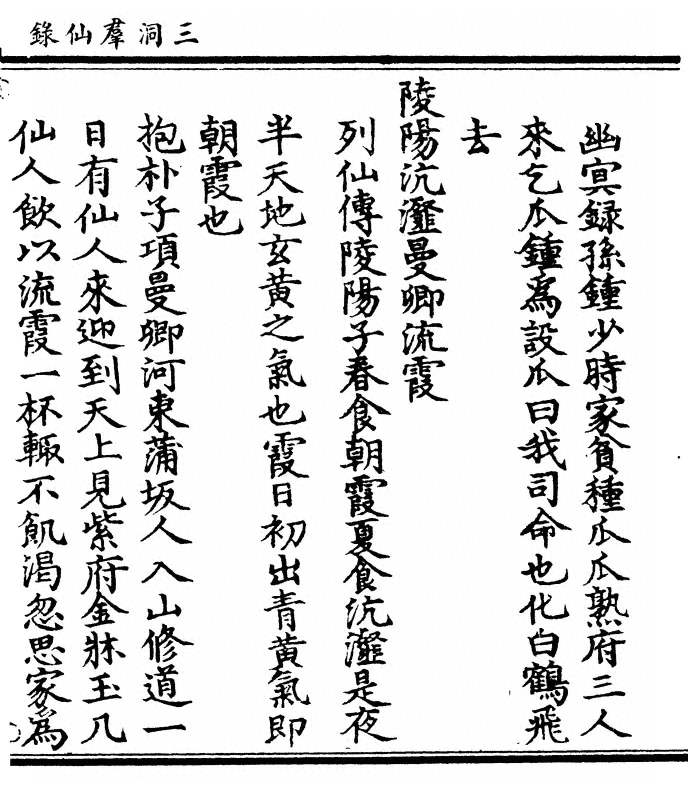 三洞羣仙錄
幽冥録孫鍾少時家貧種瓜瓜熟府三人
來乞瓜鍾爲設瓜曰我司命也化白鶴飛
去
陵陽沆瀣曼卿流霞
列仙傳陵陽子春食朝霞夏食沆瀣是夜
半天地玄黃之氣也霞日初出青黃氣即
朝霞也
抱朴子項曼卿河東蒲坂人入山修道一
日有仙人來迎到天上見紫府金牀玉几
仙人飲以流霞一杯輙不飢渴忽思家爲